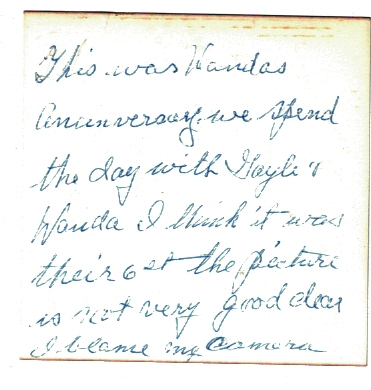 This was Wandas
Anunversary. we spend
the day with Gayle &
Wanda I think it was
their 6 st the picture
is not very good clear
I blame my Camera